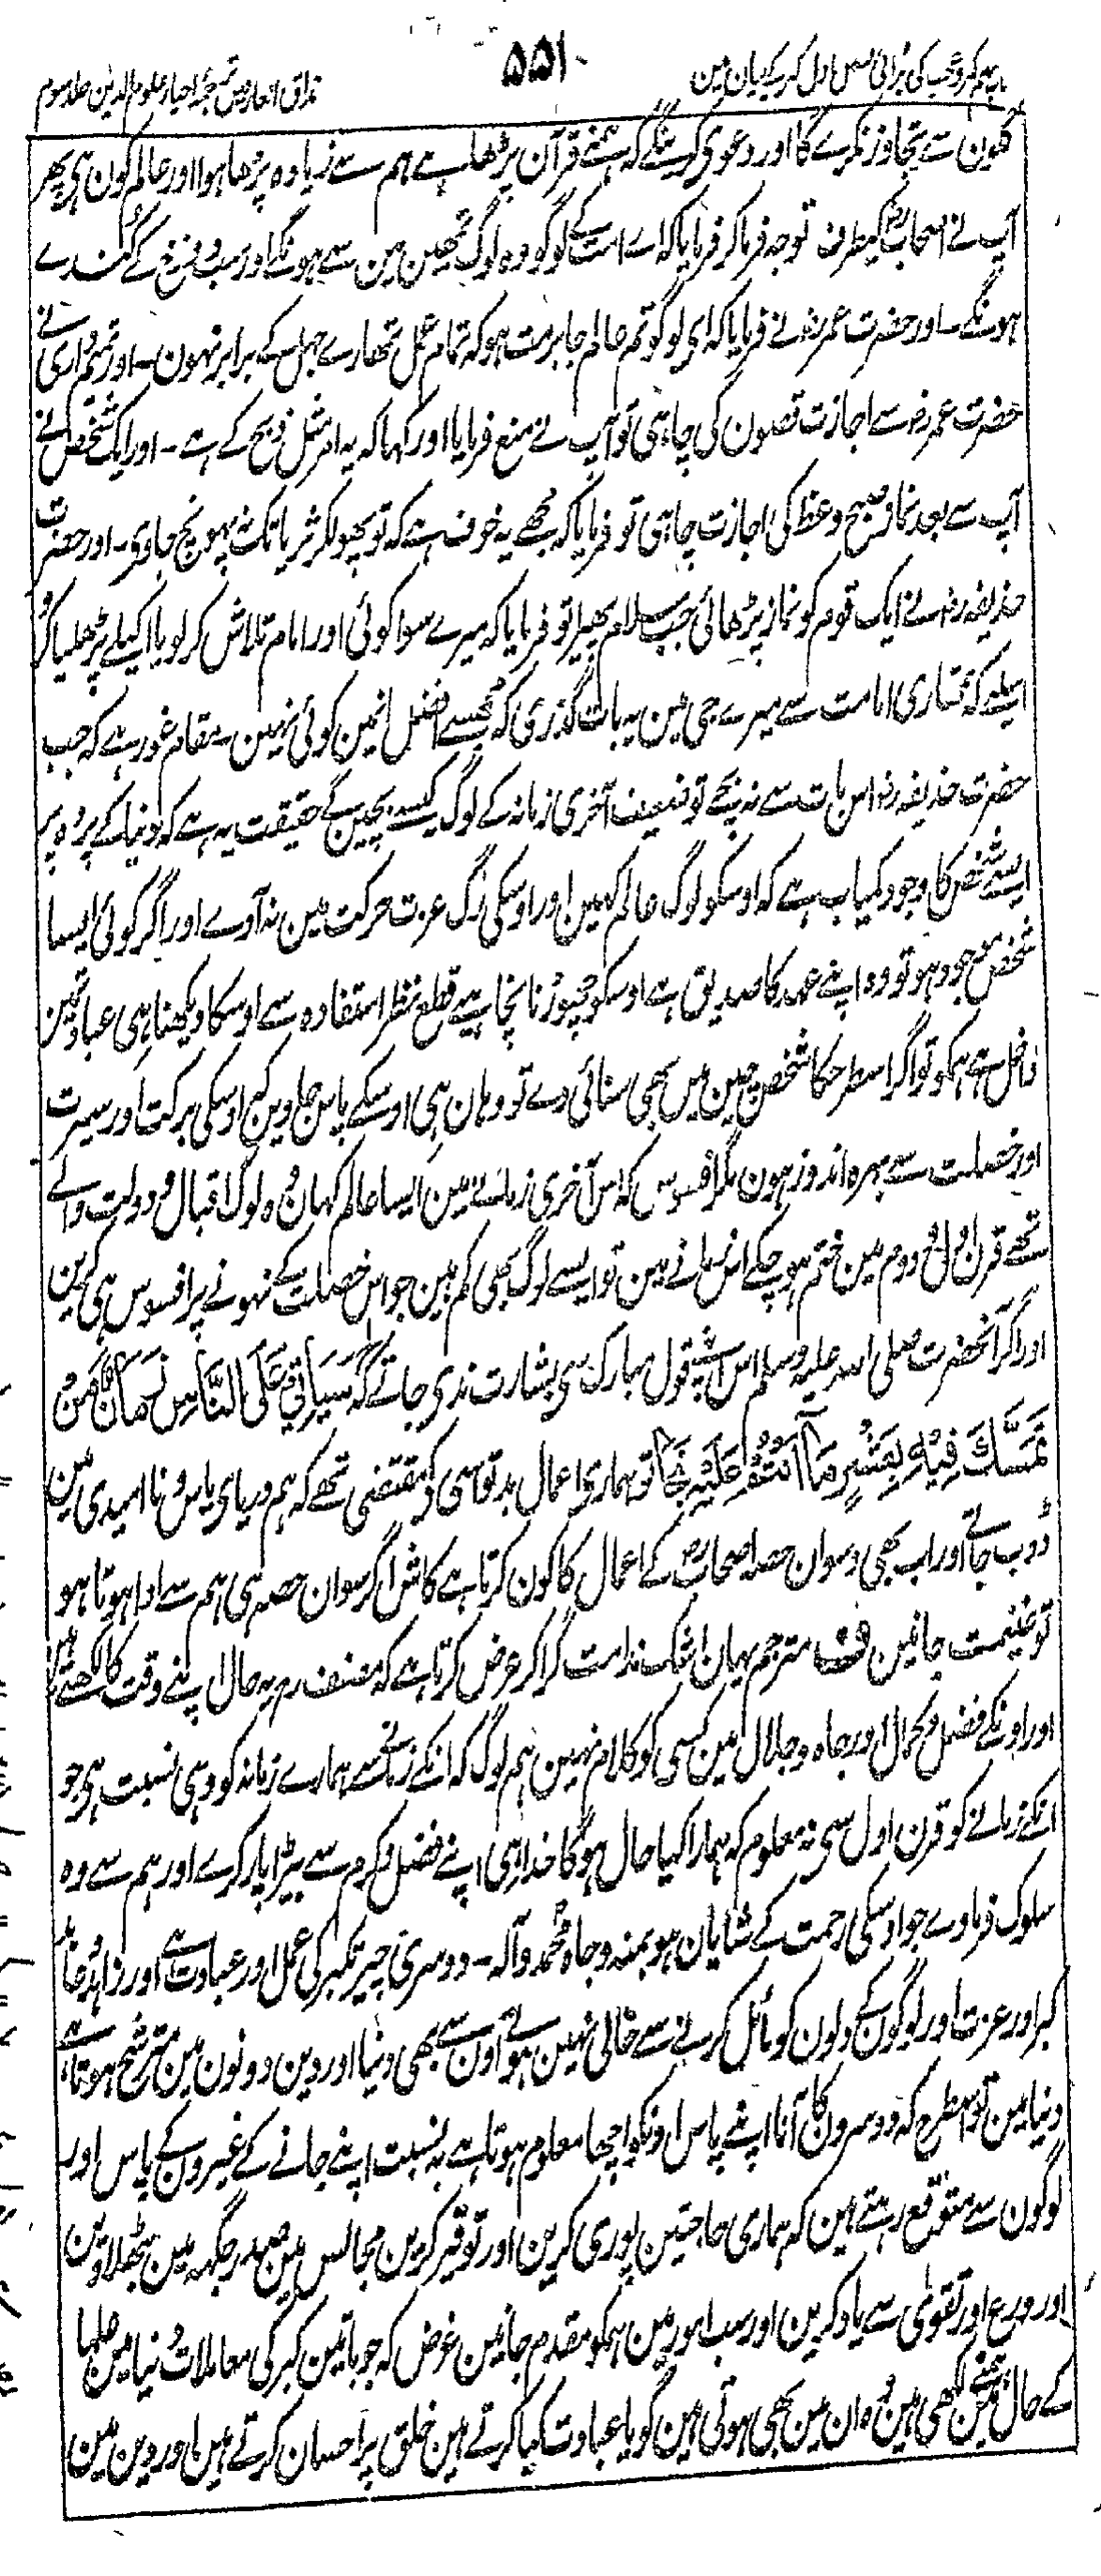 باب نہم کبر و عجب کی برائی فصل اول کبر کے بیان مین
۵۵۱
مذاق العارفین ترجمہ احیاء علوم الدین جلد سوم
گلون سے تجاوز نکرے گا اور دعوی کرینگے کہ ہمنے قرآن پڑھا ہے ہم سے زیادہ پڑھا ہوا اور عالم کون ہی پھر
آپ نے اصحاب رض کیطرف توجہ فرما کر فرمایا کہ اے امت کے لوگو وہ لوگ تمھین مین سے ہونگے اور سب دوزخ کے کُندے
ہونگے۔ اور حضرت عمر رض نے فرمایا کہ ای لوگو تم عالم جابر مت ہو کہ تمام عمل تمھارے جہل کے برابر نہون۔ اور تمیم داری نے
حضرت عمر رض سے اجازت قصون کی چاہی تو آپ نے منع فرمایا اور کہا کہ یہ امر مثل ذبح کے ہے۔ اور ایک شخص نے
آپ سے بعد نماز صبح وعظ کی اجازت چاہی تو فرمایا کہ مجھے یہ خوف ہے کہ تو پھولکر ثریا تک نہ پہونچ جاوی۔ اور حضرت
حذیفہ رض نے ایک قوم کو نماز پڑھائی جب سلام پھیرا تو فرمایا کہ میرے سوا کوئی اور امام تلاش کر لو یا اکیلے پڑھ لیا کرو
اسلیے کہ تمھاری امامت سے میرے جی مین یہ بات گذری کہ مجھسے افضل انمین کوئی نہین مقام غور ہے کہ جب
حضرت حذیفہ رض اس بات سے نہ بچے تو ضعیف آخری زمانہ کے لوگ کیسے بچین گے حقیقت یہ ہے کہ دنیا کے پردہ پر
ایسے شخص کا وجود کمیاب ہے کہ اوسکو لوگ عالم کہین اور اوسکی رگ عزت حرکت مین نہ آوے اور اگر کوئی ایسا
شخص موجود ہو تو وہ اپنے عہد کا صدیق ہے اوسکو چھوڑنا نچاہیے قطع نظر استفادہ سے اوسکا دیکھنا ہی عبادت مین
داخل ہے ہمکو تو اگر اسطرحکا شخص چین مین بھی سنائی دے تو وہان ہی اوسکے پاس جاوین کہ اوسکی برکت اور سیرت
اور خصلت سے بہرہ اندوز ہون مگر افسوس کہ اس آخری زمانے مین ایسا عالم کہان وہ لوگ اقبال و دولت والے
تھے قرن اول و دوم مین ختم ہو چکے اس زمانے مین تو ایسے لوگ بھی کم ہین جو اس خصلت کے نہونے پر افسوس ہی کرین
اور اگر آنحضرت صلی اللہ علیہ وسلم اس اپنے قول مبارک سی بشارت ندی جاتے کہ سَيَأْتِي عَلَى النَّاسِ زَمَانٌ مَنْ
تَمَسَّكَ فِيْهِ بِعُشْرِ مَا أَنْتُمْ عَلَيْهِ نَجَا تو ہماری اعمال بد تو اسی کو مقتضی تھے کہ ہم دریای یاس و نا امیدی مین
ڈوب جاتے اور اب بھی دسوان حصہ اصحاب رض کے اعمال کا کون کرتا ہے کاش اگر سوان حصہ ہی ہم سے ادا ہوتا ہو
تو غنیمت جانین ف مترجم یہان اشک ندامت گرا کر عرض کرتا ہے کہ مصنف رح یہ حال اپنے وقت کا لکھتے ہین
اور اونکے فضل و کمال اور جاہ و جلال مین کسی کو کلام نہین ہم لوگ کہ انکے زمانے سے ہمارے زمانہ کو وہی نسبت ہی جو
انکے زمانے کو قرن اول سی نہ معلوم کہ ہمارا کیا حال ہو گا خدا ہی اپنے فضل و کرم سے بیڑا پار کرے اور ہم سے وہ
سلوک فرماوے جو اوسکی رحمت کے شایان ہو بمنہ و جاہ محمد و آلہ۔ دوسری چیز تکبر کی عمل اور عبادت ہے اور زاہد و عابد
کبر اور عزت اور لوگون کے دلون کو مائل کرنے سے خالی نہین ہوتے اون سے بھی دنیا اور دین دونون مین مترشح ہوتا ہے
دنیا مین تو اسطرح کہ دوسرون کا آنا اپنے پاس اونکو اچھا معلوم ہوتا ہے بہ نسبت اپنے جانے کے غیرون کے پاس اور
لوگون سے متوقع رہتے ہین کہ ہماری حاجتین پوری کرین اور توقیر کرین مجالس مین صدر جگہ مین بٹھلاوین
اور ورع اور تقوی سے یاد کرین اور سب امور مین ہمکو مقدم جانین غرض کہ جو باتین کبر کی معاملات دنیا مین علما
کے حال مین ہمنے لکھی ہین وہ ان مین بھی ہوتی ہین گویا عبادت کیا کرتے ہین خلق پر احسان کرتے ہین اور دین مین